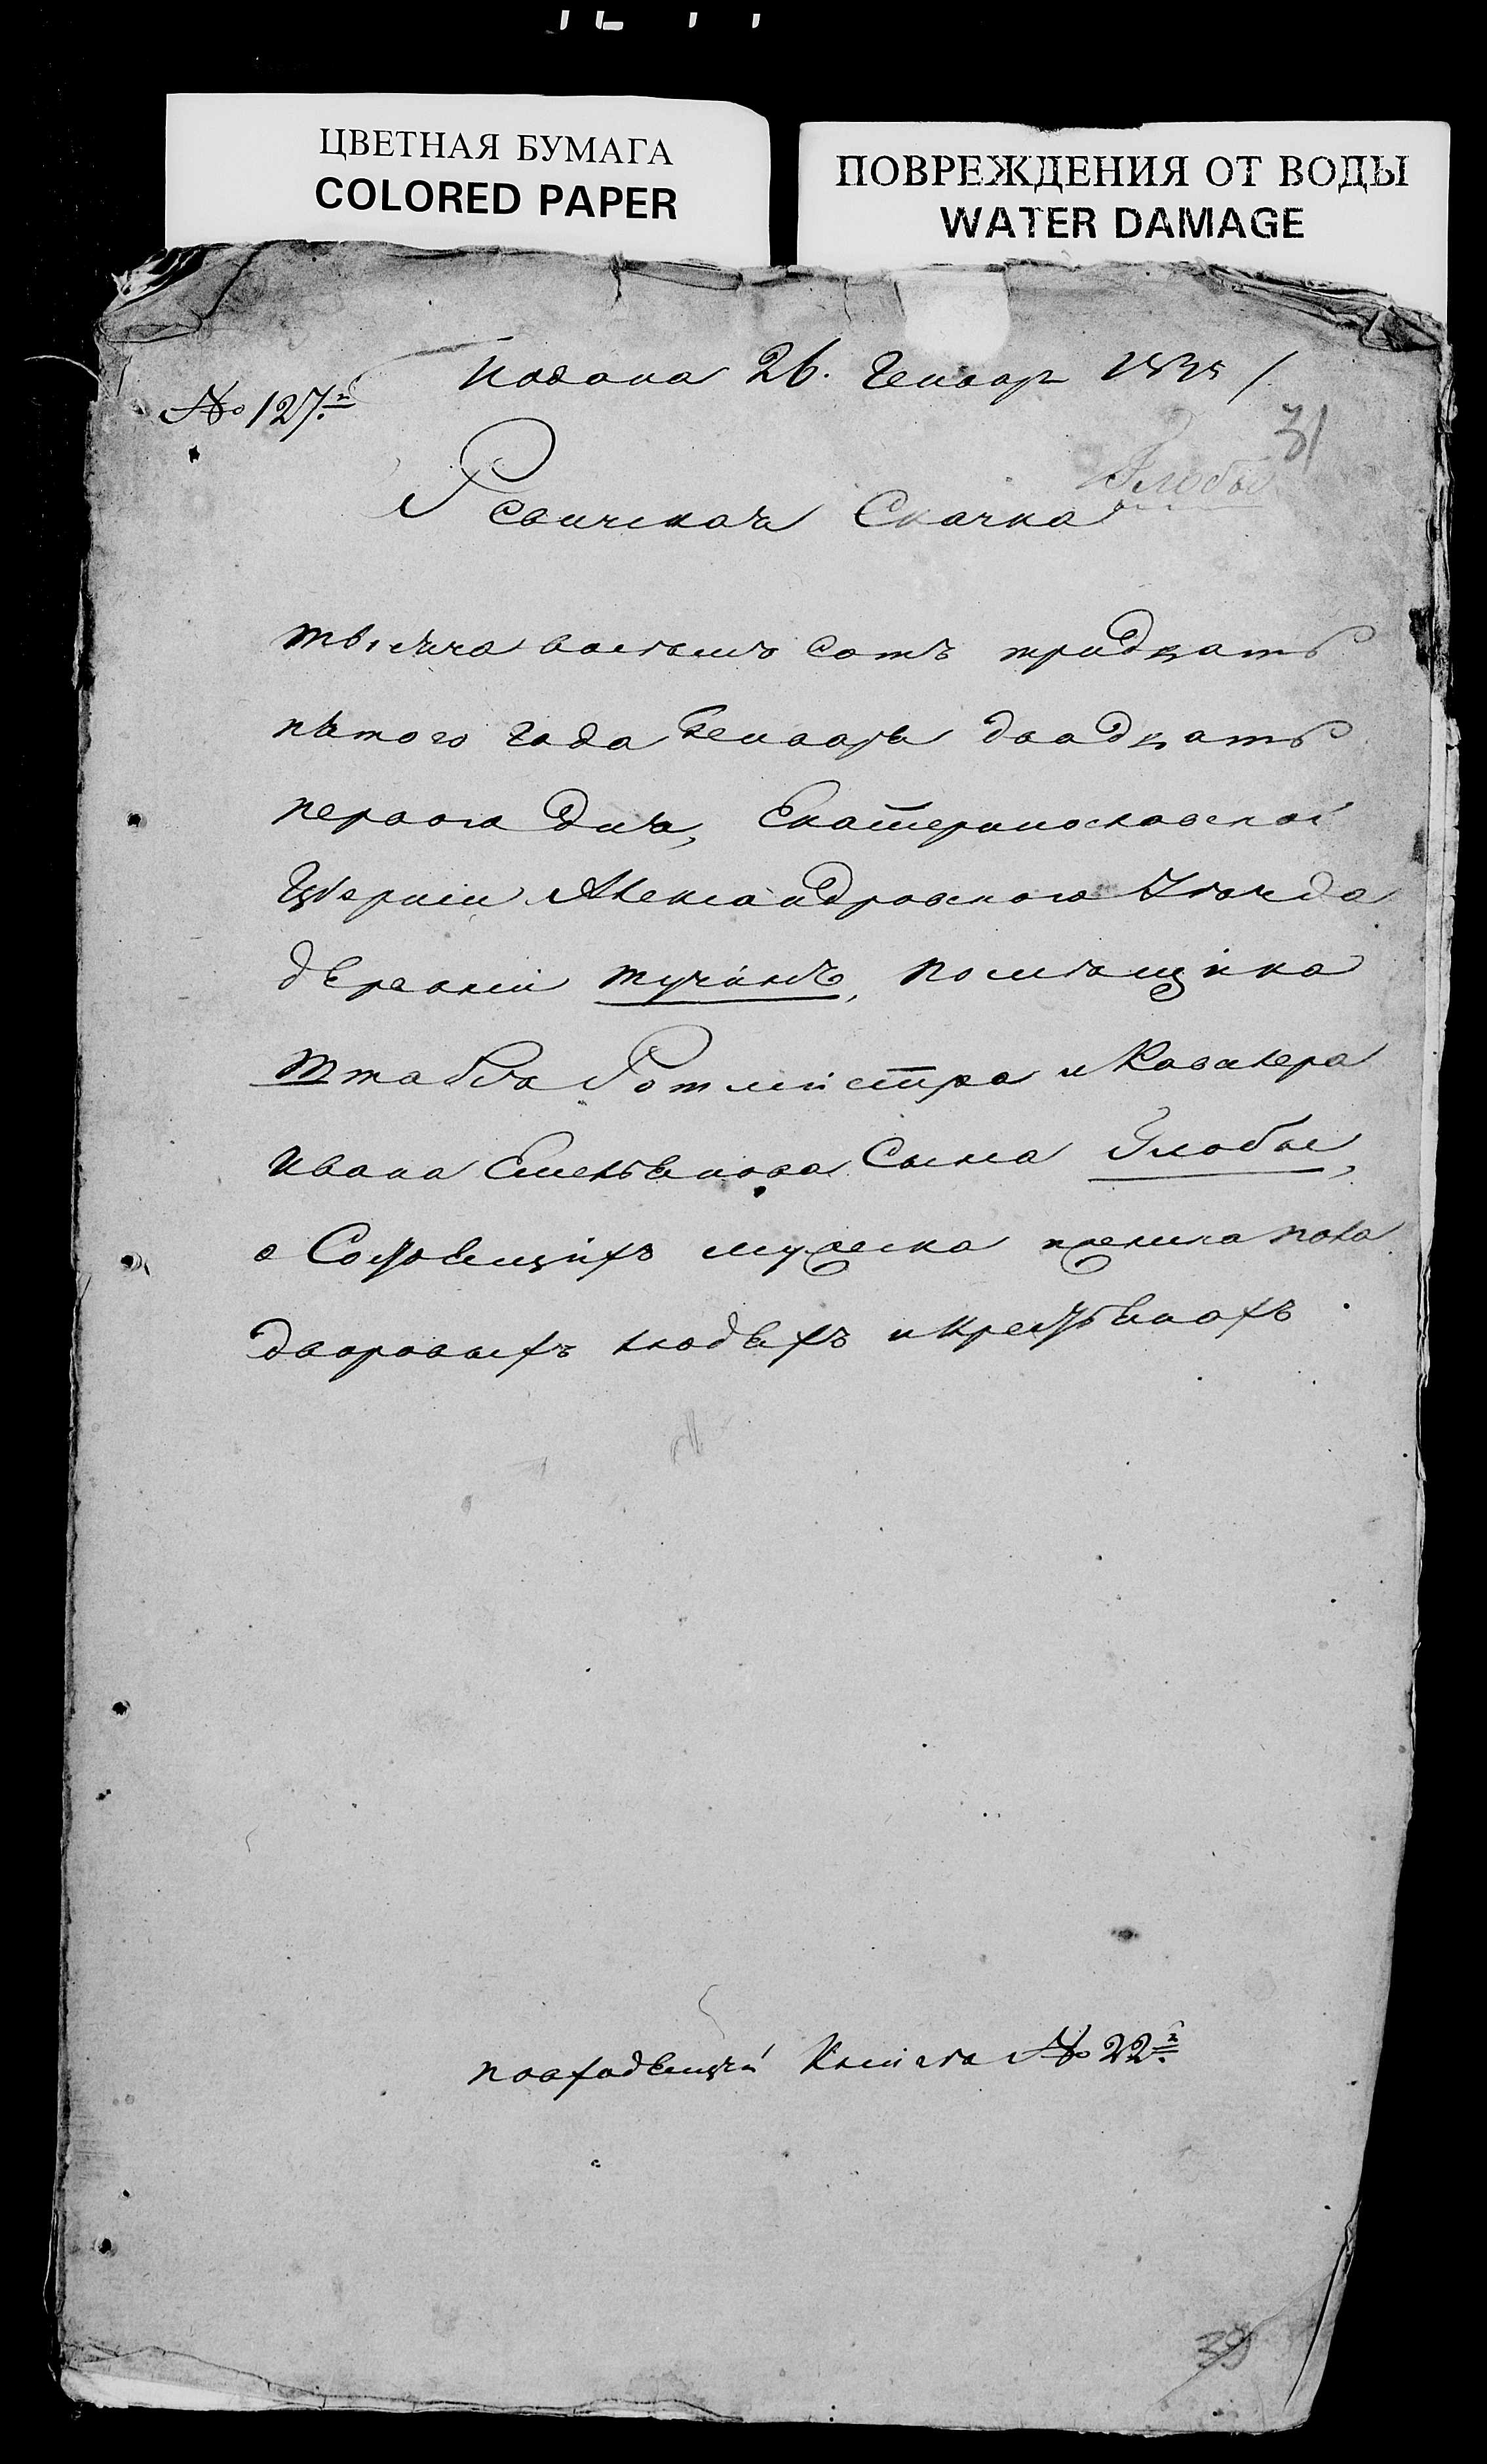 ЦВЕТНАЯ БУМАГА
COLORED PAPER
ПОВРЕЖДЕНИЯ ОТ ВОДЫ
WATER DAMAGE
Подана 26. Генваря 1835 /
№ 127.й
31
Глобы
Ревичская Скачка
тысяча восемь сотъ тридцать
пятого года Генваря двадцать
первого дня, Екатеринославской
Губерніи Александровского Уезда
деревніи тучинъ, помѣщика
Штабсъ Ротмистра и Кавалера
Ивана Емельянова Сына Глобы,
о Состоящихъ мужеска женска пола
дворовыхъ людяхъ и крестьянахъ
повходящей Книги № 22.й
39